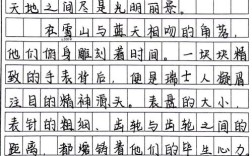 天地之间尽是光明丽景。
在雪山与蓝天相吻的角落，
他们俯身雕刻着时间。一块块精
致的手表背后，便是瑞士人凝眉
注目的精神源头。表盘的大小，
表针的粗细、齿轮与齿轮之间的
距离，都熔铸着他们的毕生心力